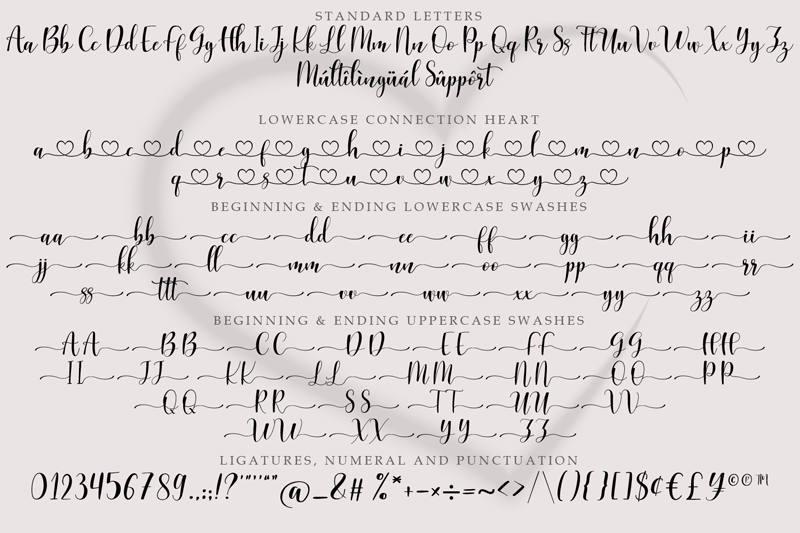 STANDARD LETTERS
Aa Bb Cc Dd Ee Ff Gg Hh Ii Jj Kk Ll Mm Nn Oo Pp Qq Rr Ss Tt Uu Vv Ww Xx Yy Zz
Múltîlìngüál Sûppôrt
LOWERCASE CONNECTION HEART
a♡b♡c♡d♡e♡f♡g♡h♡i♡j♡k♡l♡m♡n♡o♡p♡
q♡r♡s♡t♡u♡v♡w♡x♡y♡z♡
BEGINNING & ENDING LOWERCASE SWASHES
aa bb cc dd ee ff gg hh ii
jj kk ll mm nn oo pp qq rr
ss ttt uu vv ww xx yy zz
BEGINNING & ENDING UPPERCASE SWASHES
AA BB CC DD EE FF GG HH
II JJ KK LL MM NN OO PP
QQ RR SS TT UU VV
WW XX YY ZZ
LIGATURES, NUMERAL AND PUNCTUATION
0123456789.,:;!?'"''""‚„@_&# %*+−×÷=~<>/\(){}[]$¢€£¥©℗™